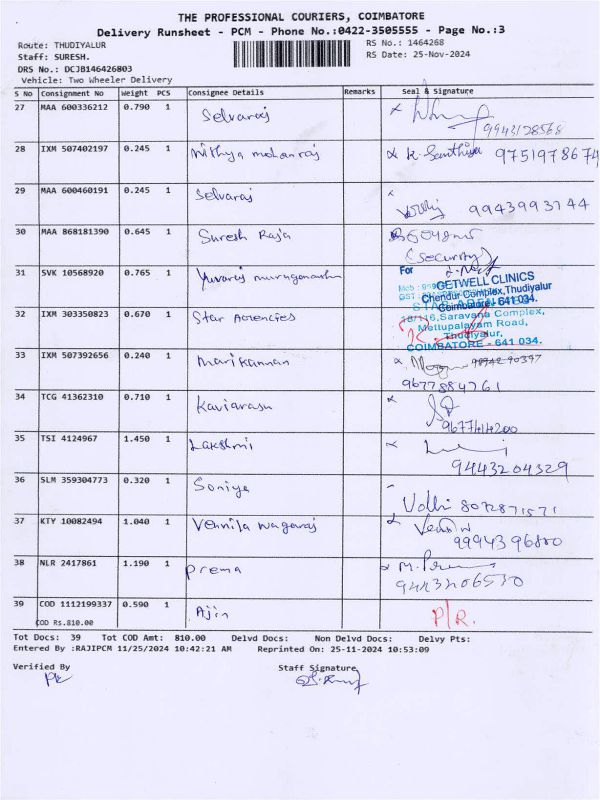 THE PROFESSIONAL COURIERS, COIMBATORE
Delivery Runsheet - PCM - Phone No.:0422-3505555 - Page No.:3
Route: THUDIYALUR RS No.: 1464268
Staff: SURESH. RS Date: 25-Nov-2024
DRS No.: DCJB146426803
Vehicle: Two Wheeler Delivery
S No Consignment No Weight PCS Consignee Details Remarks Seal & Signature
27 MAA 600336212 0.790 1 Selvaraj
9943128568
28 IXM 507402197 0.245 1 Nithya mohanraj K. Santhiya 9751978674
29 MAA 600460191 0.245 1 Selvaraj
9943993744
30 MAA 868181390 0.645 1 Suresh Raja
(Security)
31 SVK 10568920 0.765 1 Yuvaraj
For GETWELL CLINICS
Chendur Complex, Thudiyalur
Coimbatore - 641 034.
32 IXM 303350823 0.670 1 Star Agencies
18/116, Saravana Complex,
Mettupalayam Road,
Thudiyalur,
COIMBATORE - 641 034.
33 IXM 507392656 0.240 1 Marikannan
9677884761
34 TCG 41362310 0.710 1 Kaviarasu
9677414200
35 TSI 4124967 1.450 1 Lakshmi
9443204329
36 SLM 359304773 0.320 1 Soniya
Valli 8072871571
37 KTY 10082494 1.040 1 Vennila nagaraj
9994396880
38 NLR 2417861 1.190 1 Prema
9443206530
39 COD 1112199337 0.590 1 Ajin P/R.
COD Rs.810.00
Tot Docs: 39 Tot COD Amt: 810.00 Delvd Docs: Non Delvd Docs: Delvy Pts:
Entered By :RAJIPCM 11/25/2024 10:42:21 AM Reprinted On: 25-11-2024 10:53:09
Verified By Staff Signature